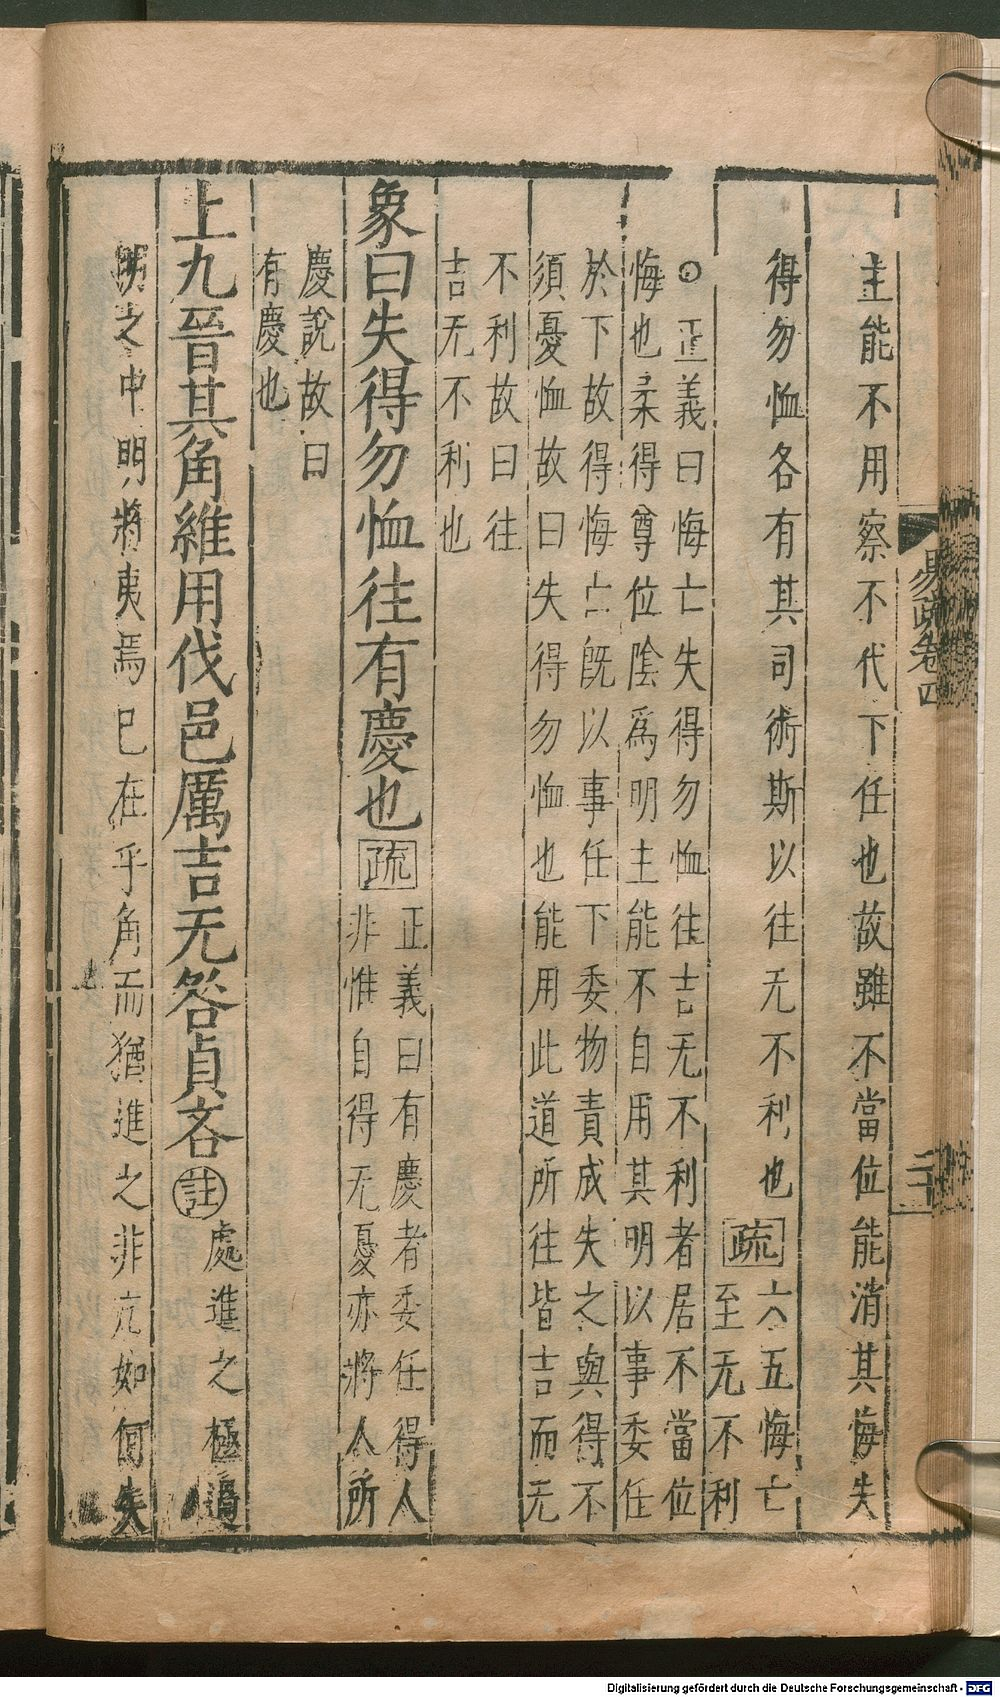 易疏卷四
主能不用察不代下任也故雖不當位能消其悔失
得勿恤各有其司術斯以往无不利也疏六五悔亡
至无不利
○正義曰悔亡失得勿恤往吉无不利者居不當位
悔也柔得尊位陰爲明主能不自用其明以事委任
於下故得悔亡旣以事任下委物責成失之與得不
須憂恤故曰失得勿恤也能用此道所往皆吉而无
不利故曰往
吉无不利也
象曰失得勿恤往有慶也疏正義曰有慶者委任得人
非惟自得无憂亦將人所
慶說故曰
有慶也
上九晉其角維用伐邑厲吉无咎貞吝註處進之極過
明之中明將夷焉已在乎角而猶進之非亢如何失
Digitalisierung gefördert durch die Deutsche Forschungsgemeinschaft - DFG